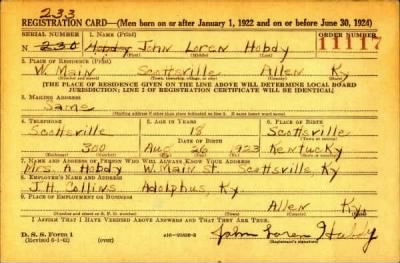 233
REGISTRATION CARD—(Men born on or after January 1, 1922 and on or before June 30, 1924)
SERIAL NUMBER 1. NAME (Print) ORDER NUMBER
N 230 Hobdy John Loren Hobdy 11117
(First) (Middle) (Last)
2. PLACE OF RESIDENCE (Print)
W. Main Scottsville Allen Ky
(Number and street) (Town, township, village, or city) (County) (State)
[THE PLACE OF RESIDENCE GIVEN ON THE LINE ABOVE WILL DETERMINE LOCAL BOARD
JURISDICTION; LINE 2 OF REGISTRATION CERTIFICATE WILL BE IDENTICAL]
3. MAILING ADDRESS
Same
[Mailing address if other than place indicated on line 2. If same insert word same]
4. TELEPHONE 5. AGE IN YEARS 6. PLACE OF BIRTH
Scottsville 18 Scottsville
DATE OF BIRTH
300 Aug 26 1923 Kentucky
(Exchange) (Number) (Mo.) (Day) (Yr.) (State or country)
7. NAME AND ADDRESS OF PERSON WHO WILL ALWAYS KNOW YOUR ADDRESS
Mrs. A. Hobdy W. Main St. Scottsville, Ky
8. EMPLOYER'S NAME AND ADDRESS
J.H. Collins Adolphus, Ky.
9. PLACE OF EMPLOYMENT OR BUSINESS
Allen Ky.
(Number and street or R. F. D. number) (Town) (County) (State)
I AFFIRM THAT I HAVE VERIFIED ABOVE ANSWERS AND THAT THEY ARE TRUE.
D. S. S. Form 1
(Revised 6-1-42) (over) John Loren Hobdy
(Registrant's signature)